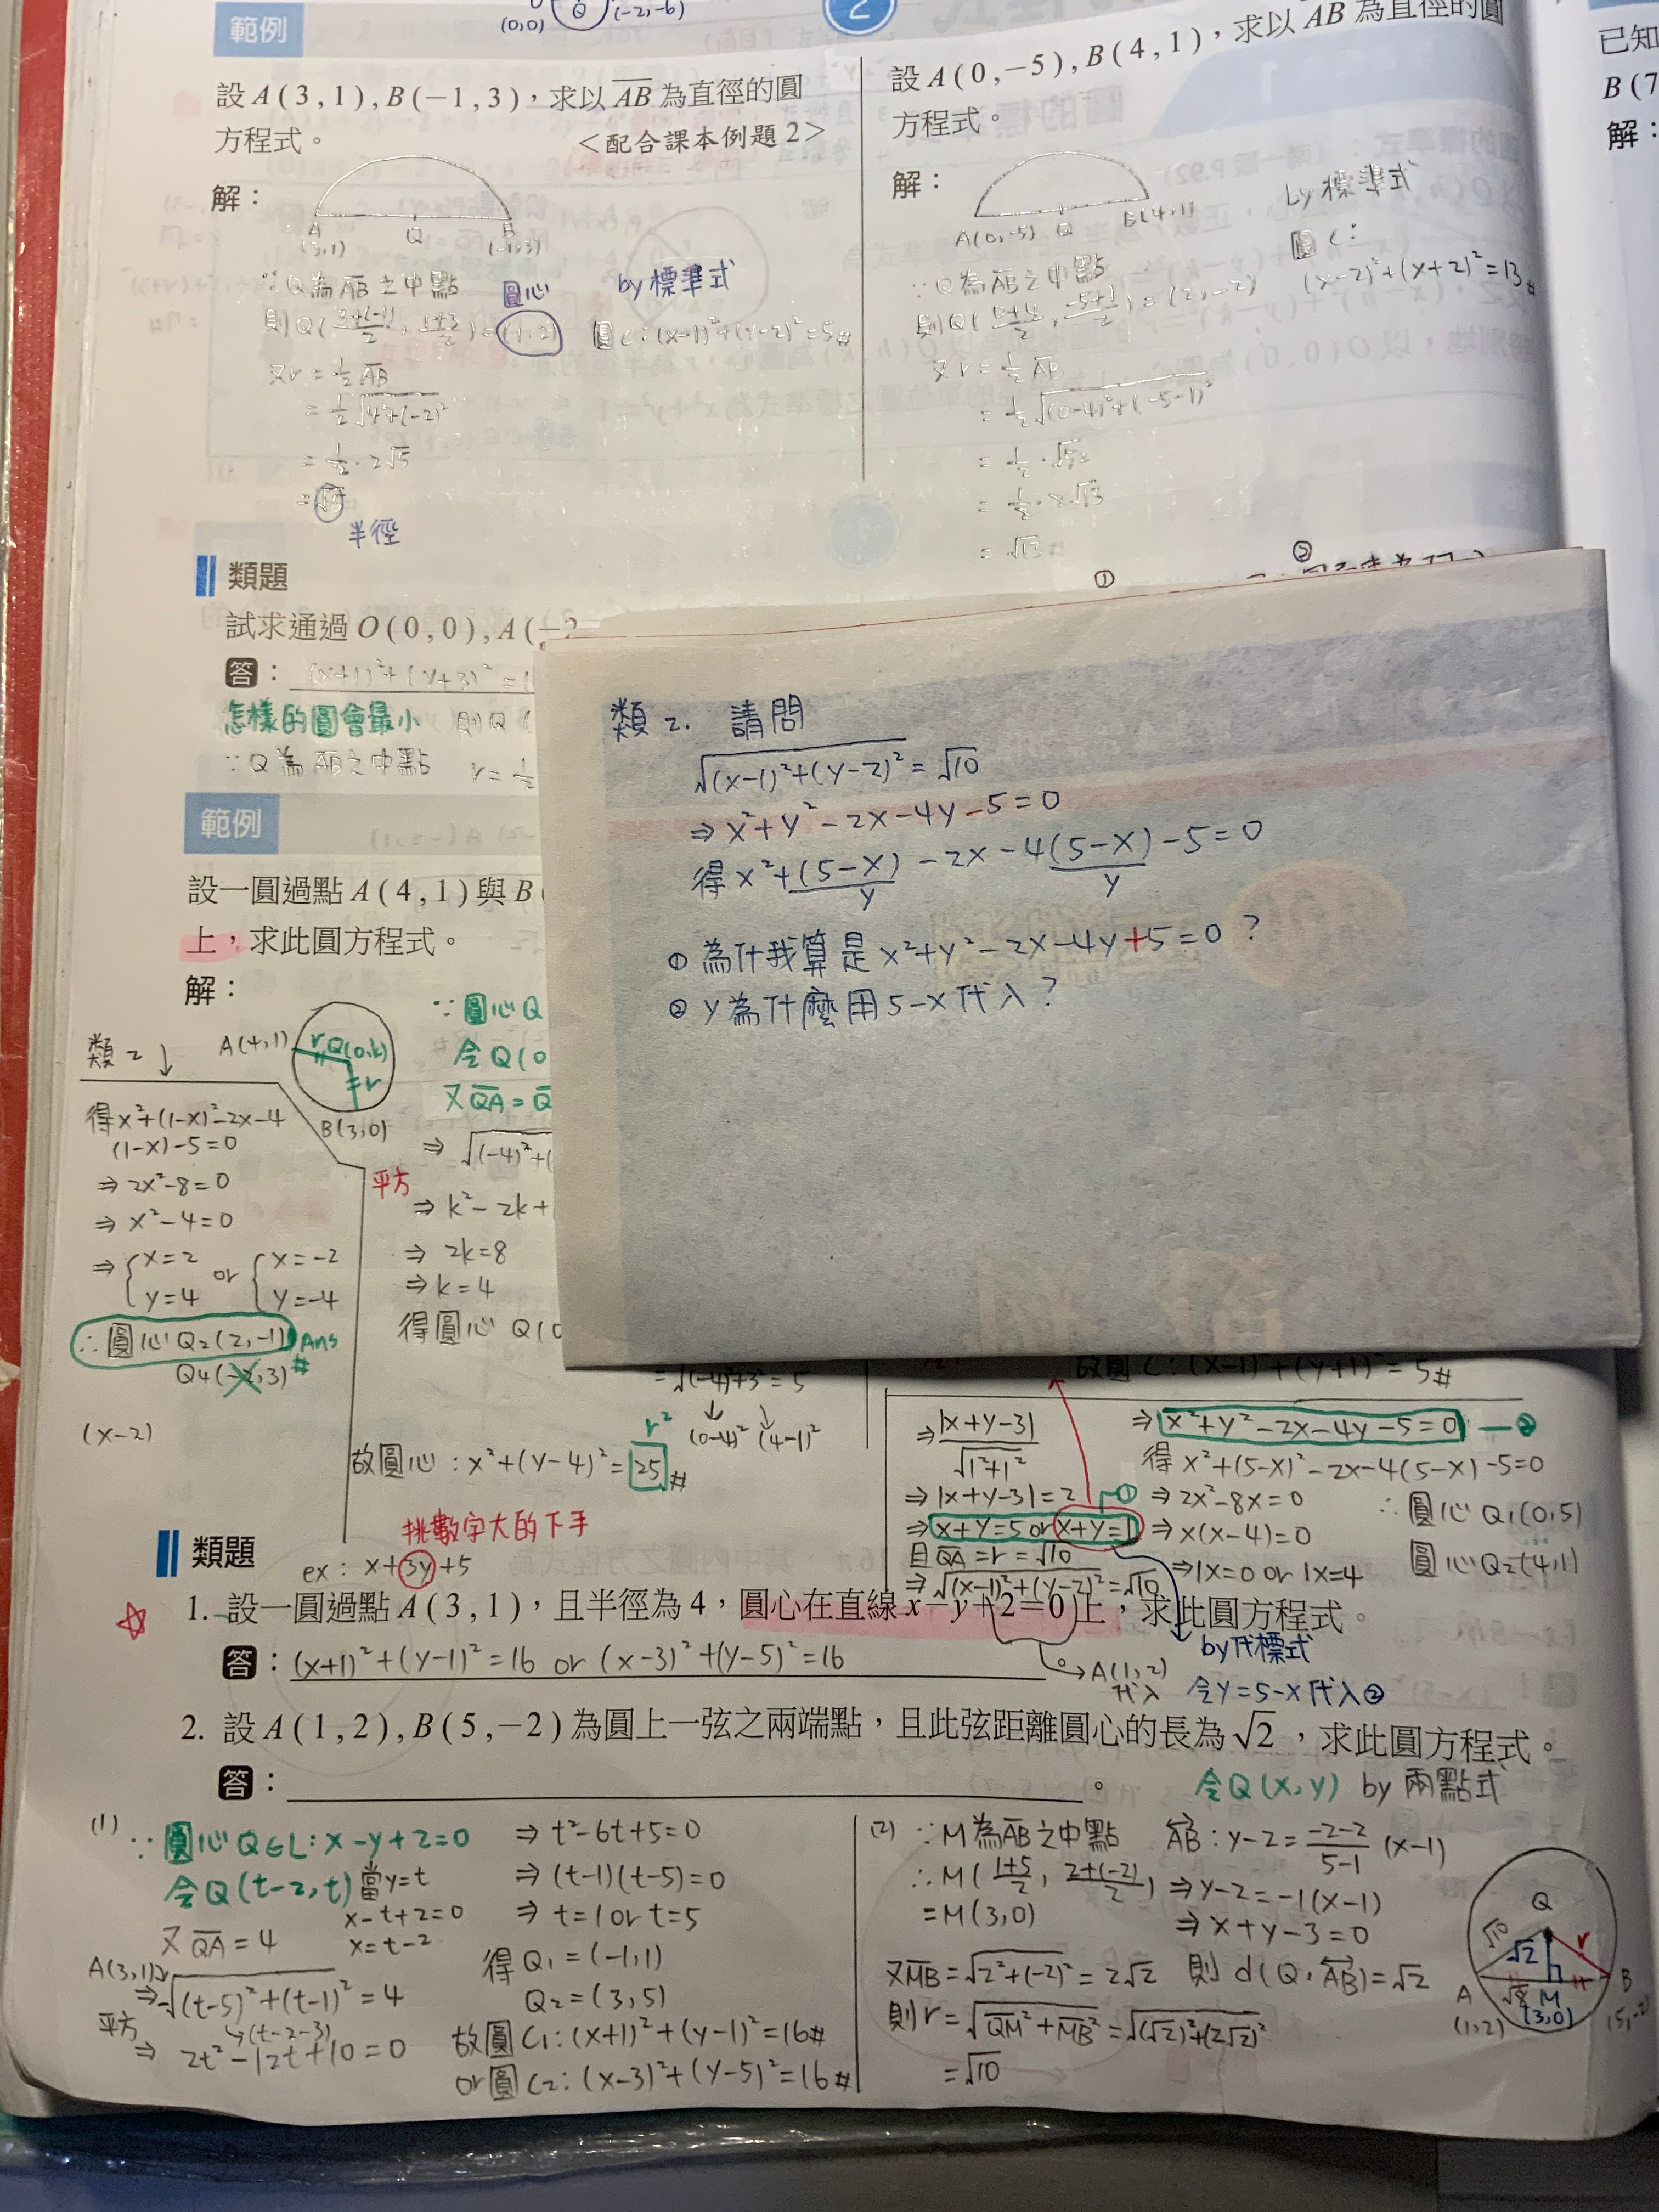 範例
(0,0) Q (-2,-6)
2
設 A(3,1),B(−1,3),求以 AB 為直徑的圓
方程式。
<配合課本例題2>
解:
A
(3,1)
Q
B
(-1,3)
∵Q為AB之中點
圓心
則Q(3+(-1)/2, 1+3/2)=(1,2)
又r=1/2 AB
=1/2√4²+(-2)²
=1/2·2√5
=√5
半徑
by標準式
圓C:(x-1)²+(y-2)²=5#
設 A(0,−5),B(4,1),求以 AB 為直徑的圓
方程式。
解:
A(0,-5) Q B(4,1)
by標準式
圓C:
(x-2)²+(x+2)²=13#
∵Q為AB之中點
則Q(0+4/2, -5+1/2)=(2,-2)
又r=1/2 AB
=1/2√(0-4)²+(-5-1)²
=1/2·√52
=1/2·2√13
=√13#
已知
B(7
解:
類題
試求通過 O(0,0),A(−2
答:(x+1)²+(y+3)²=1
怎樣的圓會最小 則Q(
∵Q為AB之中點 r=1/2
① ②
類2. 請問
√(x-1)²+(y-2)²=√10
⇒x²+y²-2x-4y-5=0
得x²+(5-x)-2x-4(5-x)-5=0
y y
①為什我算是x²+y²-2x-4y+5=0?
②y為什麼用5-x代入?
範例
設一圓過點 A(4,1)與 B(
上,求此圓方程式。
解:
A(4,1)
r
Q(0,k)
=r
B(3,0)
∵圓心Q
令Q(0
又QA=Q
⇒√(-4)²+(
平方
⇒k²-2k+
⇒2k=8
⇒k=4
得圓心Q(0
=√(-4)²+3²=5
(0-4)² (4-1)²
r²
故圓心:x²+(y-4)²=25#
類2↓
得x²+(1-x)²-2x-4
(1-x)-5=0
⇒2x²-8=0
⇒x²-4=0
⇒{x=2 or {x=-2
y=4 y=-4
∴圓心Q₂(2,-1) Ans
Q4(-2,3)#
(x-2)
故圓C:(x-1)²+(y+1)²=5#
⇒|x+y-3|
√1²+1²
⇒|x+y-3|=2
⇒x+y=5 or x+y=1 ①
且QA=r=√10
⇒√(x-1)²+(y-2)²=√10
⇒x²+y²-2x-4y-5=0 ─②
得x²+(5-x)²-2x-4(5-x)-5=0
⇒2x²-8x=0
⇒x(x-4)=0
⇒x=0 or x=4
∴圓心Q₁(0,5)
圓心Q₂(4,1)
類題
挑數字大的下手
ex:x+3y+5
1. 設一圓過點 A(3,1),且半徑為4,圓心在直線 x−y+2=0 上,求此圓方程式。
答:(x+1)²+(y-1)²=16 or (x-3)²+(y-5)²=16。
A(1,2)
代入
令y=5-x代入②
2. 設 A(1,2),B(5,−2)為圓上一弦之兩端點,且此弦距離圓心的長為√2,求此圓方程式。
答:。
令Q(x,y) by 兩點式
(1) ∵圓心Q∈L:x-y+2=0
令Q(t-2,t) 當y=t
x-t+2=0
x=t-2
又QA=4
A(3,1)
⇒√(t-5)²+(t-1)²=4
(t-2-3)
平方
⇒2t²-12t+10=0
⇒t²-6t+5=0
⇒(t-1)(t-5)=0
⇒t=1 or t=5
得Q₁=(-1,1)
Q₂=(3,5)
故圓C₁:(x+1)²+(y-1)²=16#
or圓C₂:(x-3)²+(y-5)²=16#
(2) ∵M為AB之中點
∴M(1+5/2, 2+(-2)/2)
=M(3,0)
AB:y-2=-2-2/5-1(x-1)
⇒y-2=-1(x-1)
⇒x+y-3=0
又MB=√2²+(-2)²=2√2 則d(Q,AB)=√2
則r=√QM²+MB²=√(√2)²+(2√2)²
=√10
Q
√10
√2
r
A
(1,2)
√8
M
(3,0)
B
(5,-2)